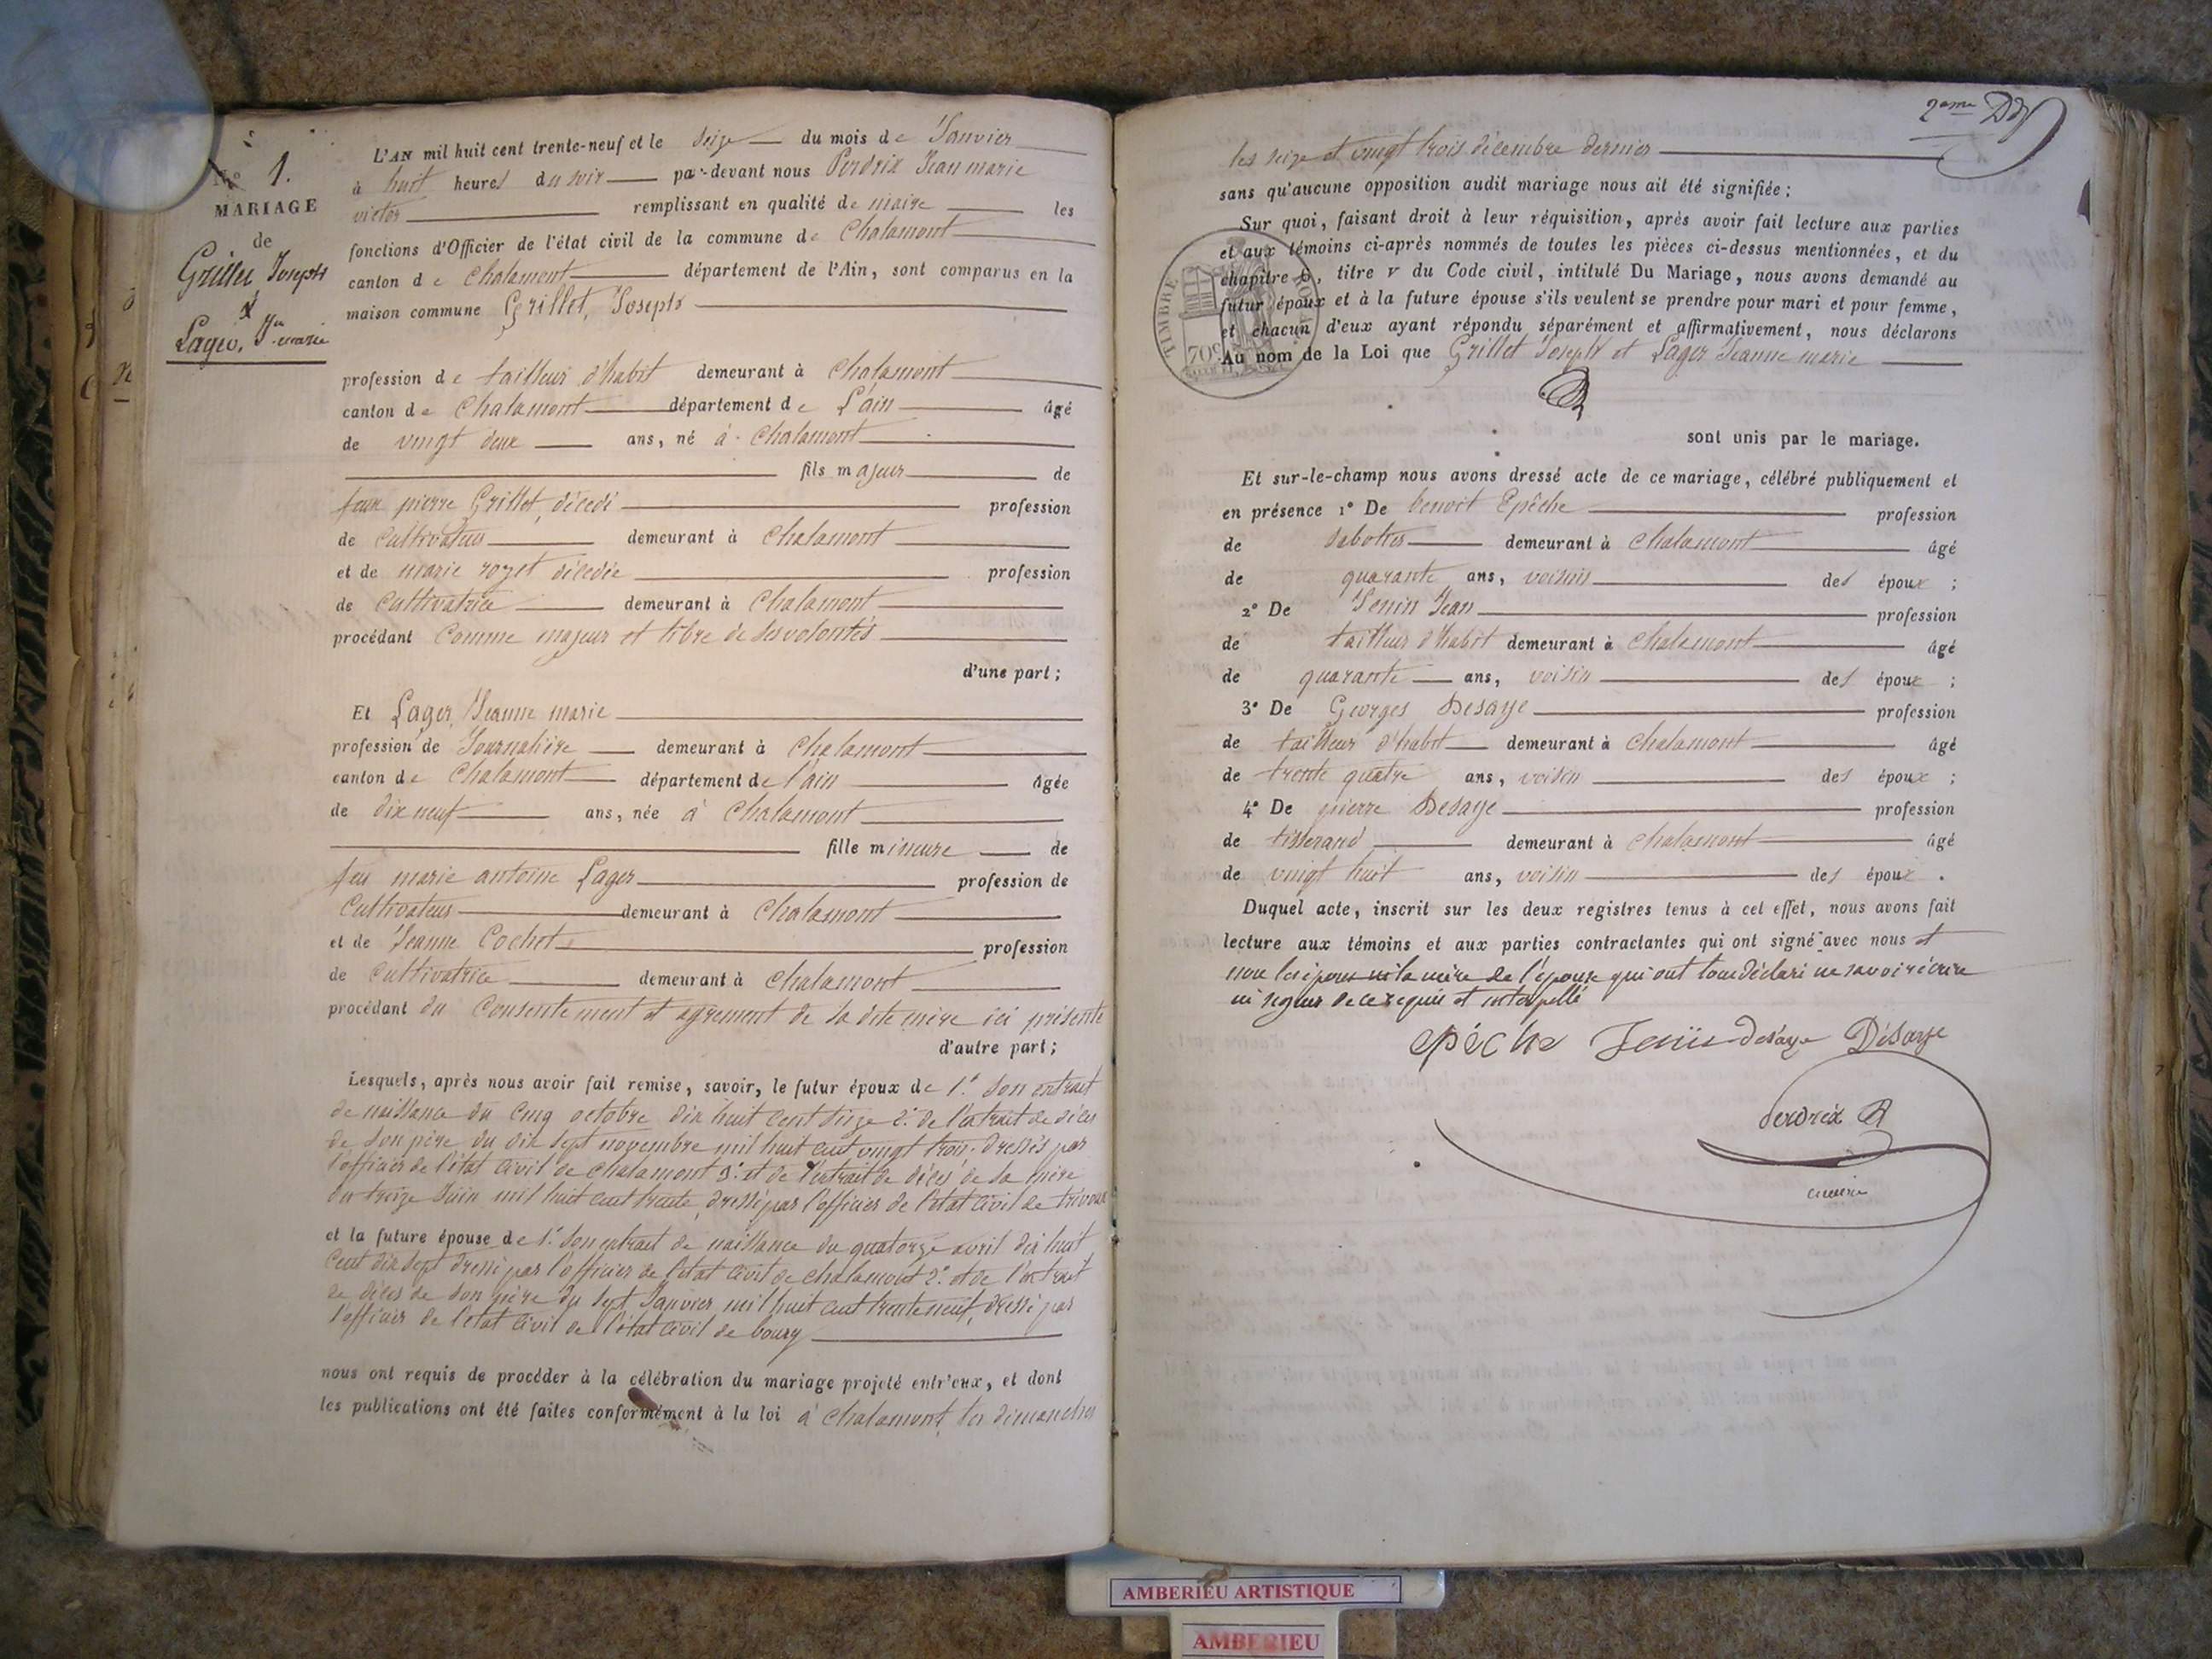 No 1.
MARIAGE
de
Grillet Joseph
&
Lager, Jne marie
L'AN mil huit cent trente-neuf et le seize du mois de Janvier
à huit heures du soir par-devant nous Perdrix Jean marie
victor remplissant en qualité de maire les
fonctions d'Officier de l'état civil de la commune de Chalamont
canton de Chalamont département de l'Ain, sont comparus en la
maison commune Grillet, Joseph
profession de tailleur d'habit demeurant à Chalamont
canton de Chalamont département de L'ain âgé
de vingt deux ans, né à Chalamont
fils majeur de
feux pierre Grillet, décedé profession
de Cultivateur demeurant à Chalamont
et de marie royet décedée profession
de Cultivatrice demeurant à Chalamont
procédant Comme majeur et libre de ses volontés
d'une part;
Et Lager, Jeanne marie
profession de Journalière demeurant à Chalamont
canton de Chalamont département de l'ain âgée
de dix neuf ans, née à Chalamont
fille mineure de
feu marie antoine Lager profession de
Cultivateur demeurant à Chalamont
et de Jeanne Cochet profession
de Cultivatrice demeurant à Chalamont
procédant du Consentement et agrement de sa dite mère ici présente
d'autre part;
Lesquels, après nous avoir fait remise, savoir, le futur époux de 1.° Son extrait
de naissance du Cinq octobre dix huit cent seize 2.° de l'extrait de décès
de son père du dix sept novembre mil huit cent vingt trois. dressés par
l'officier de l'état civil de Chalamont 3.° et de l'extrait de décès de sa mère
du treize Juin mil huit cent trente, dressé par l'officier de l'état civil de trévoux
et la future épouse de 1.° Son extrait de naissance du quatorze avril dix huit
Cent dix sept dressé par l'officier de l'état civil de chalamont 2.° et de l'extrait
de décès de son père du sept Janvier mil huit cent trente neuf, dressé par
l'officier de l'état civil de l'état civil de bourg
nous ont requis de procéder à la célébration du mariage projeté entr'eux, et dont
les publications ont été faites conformément à la loi à Chalamont, les dimanches
2eme
les seize et vingt trois décembre dernier
sans qu'aucune opposition audit mariage nous ait été signifiée;
Sur quoi, faisant droit à leur réquisition, après avoir fait lecture aux parties
et aux témoins ci-après nommés de toutes les pièces ci-dessus mentionnées, et du
chapitre 6, titre V du Code civil, intitulé Du Mariage, nous avons demandé au
futur époux et à la future épouse s'ils veulent se prendre pour mari et pour femme,
et chacun d'eux ayant répondu séparément et affirmativement, nous déclarons
Au nom de la Loi que Grillet Joseph et Lager Jeanne marie
TIMBRE ROYAL
70c
sont unis par le mariage.
Et sur-le-champ nous avons dressé acte de ce mariage, célébré publiquement et
en présence 1° De benoit Epêche profession
de sabotier demeurant à Chalamont âgé
de quarante ans, voisin des époux;
2° De Jenin Jean profession
de tailleur d'habit demeurant à Chalamont âgé
de quarante ans, voisin des époux;
3° De Georges Desaye profession
de tailleur d'habit demeurant à Chalamont âgé
de trente quatre ans, voisin des époux;
4° De pierre Desaye profession
de tisserand demeurant à Chalamont âgé
de vingt huit ans, voisin des époux.
Duquel acte, inscrit sur les deux registres tenus à cet effet, nous avons fait
lecture aux témoins et aux parties contractantes qui ont signé avec nous et
non les époux ni la mère de l'épouse qui ont tous déclaré ne savoir écrire
ni signer de ce requis et interpellé
epéche Jenin desaye Désaye
Perdrix
maire
AMBERIEU ARTISTIQUE
AMBERIEU